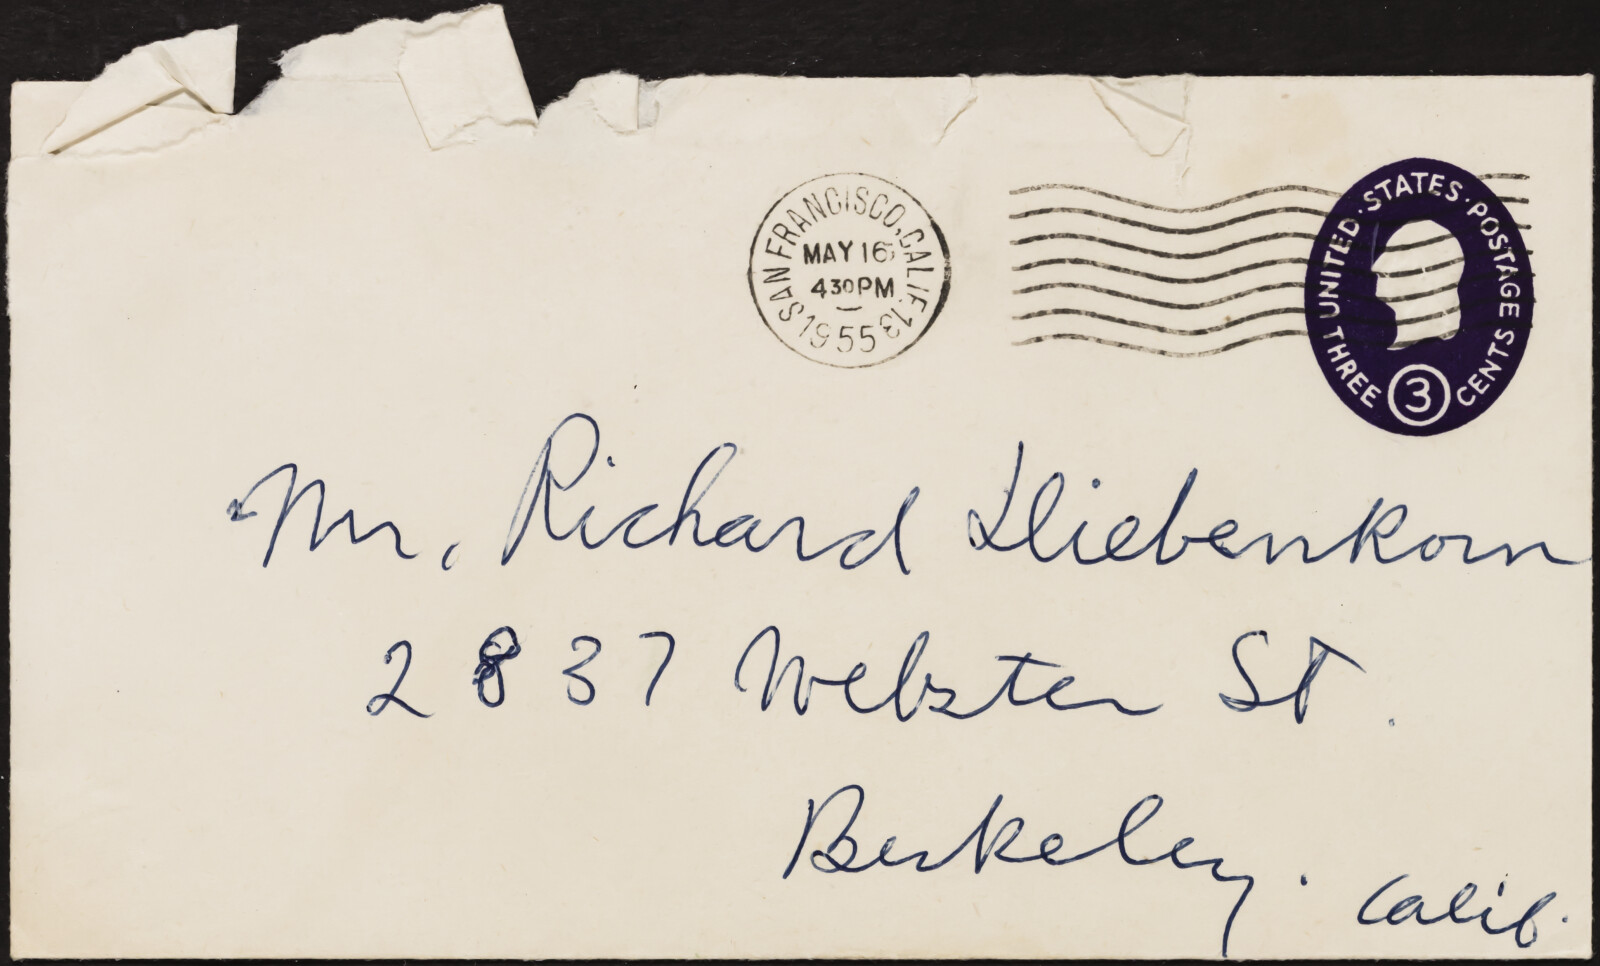 SAN FRANCISCO, CALIF. 13
MAY 16
430 PM
1955
UNITED · STATES · POSTAGE
THREE 3 CENTS
Mr. Richard Diebenkorn
2837 Webster St.
Berkeley. Calif.